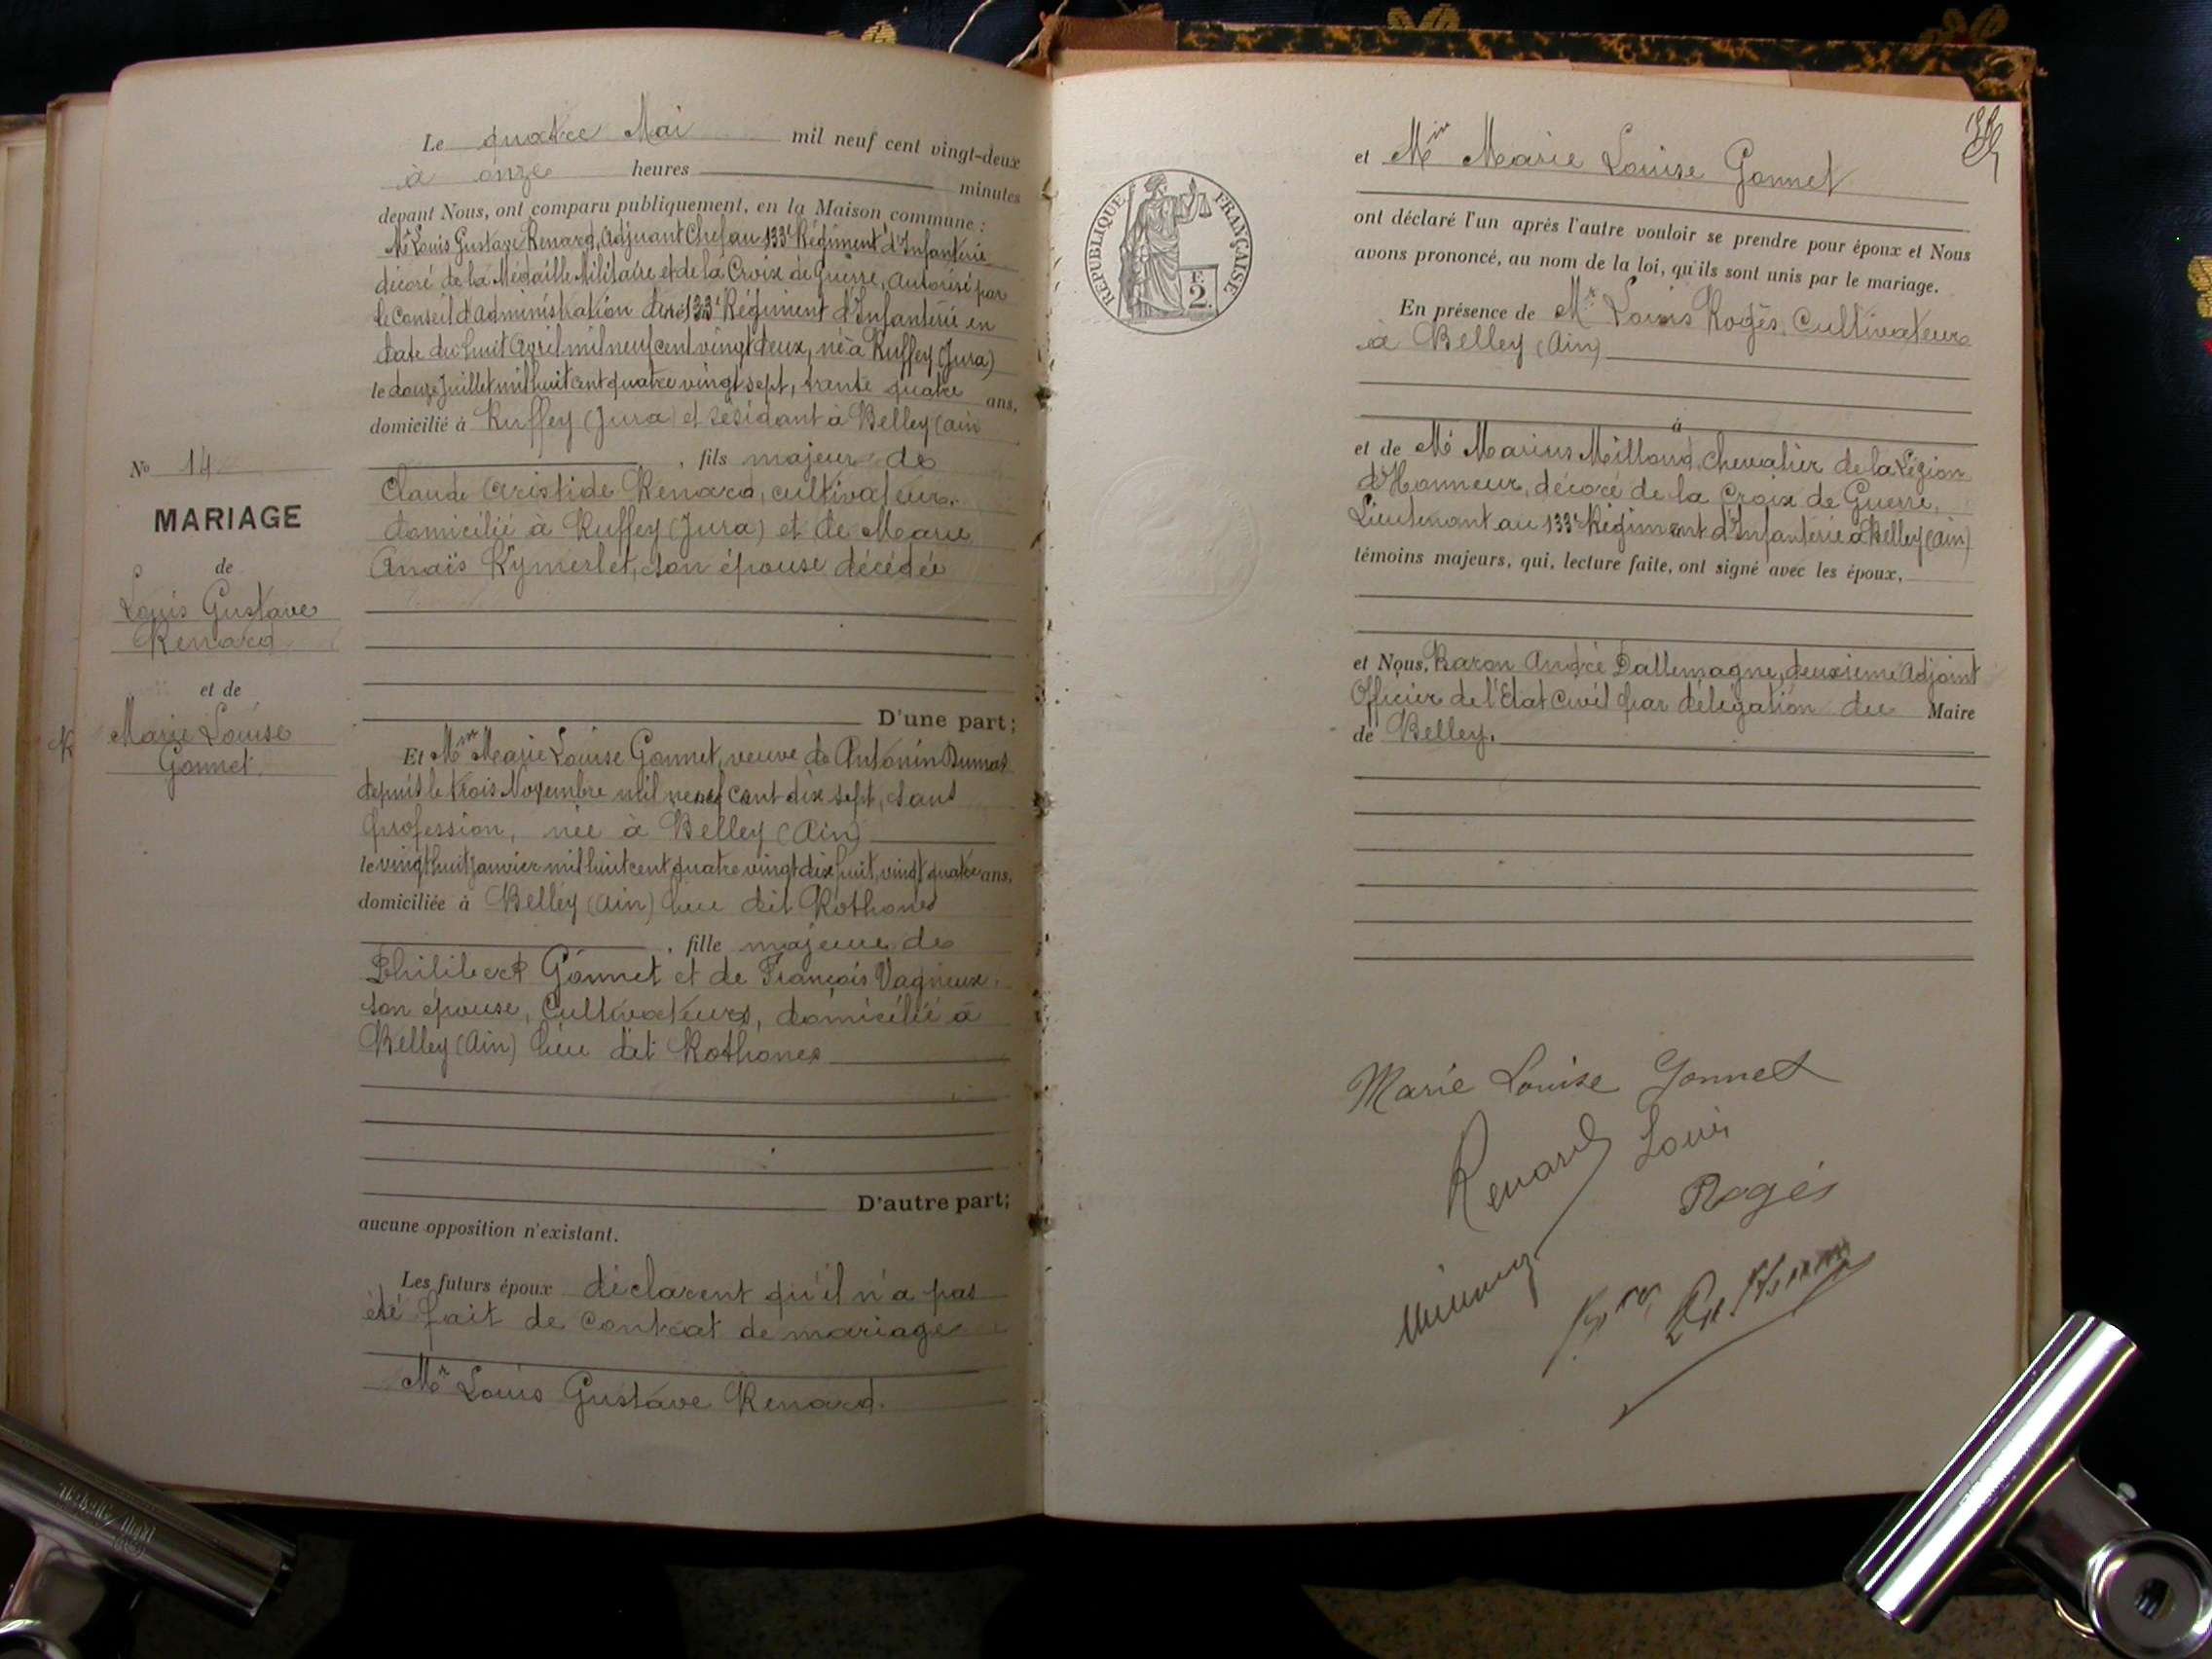 Le quatre Mai mil neuf cent vingt-deux
à onze heures minutes
devant Nous, ont comparu publiquement, en la Maison commune :
Mr Louis Gustave Renard, Adjuant Chef au 133e Régiment d'Infanterie
décoré de la Médaille Militaire et de la Croix de Guerre, autorisé par
le Conseil d'Administration du 133e Régiment d'Infanterie en
date du huit Avril mil neuf cent vingt deux, né à Ruffey (Jura)
le douze Juillet mil huit cent quatre vingt sept, trente quatre ans,
domicilié à Ruffey (Jura) et résidant à Belley (ain
, fils majeur de
Claude Aristide Renard, cultivateur,
domicilié à Ruffey (Jura) et de Marie
Anaïs Rymerlet, son épouse décédée
No 14
MARIAGE
de
Louis Gustave
Renard
et de
Marie Louise
Gonnet
D'une part;
Et Mme Marie Louise Gonnet, veuve de Antonin Dumas
depuis le trois Novembre mil neuf cent dix sept, sans
profession, née à Belley (Ain)
le vingt huit Janvier mil huit cent quatre vingt dix huit, vingt quatre ans,
domiciliée à Belley (Ain) lieu dit Rothones
, fille majeure de
Philibert Gonnet et de François Vagneux,
son épouse, Cultivateurs, domicilié à
Belley (Ain) lieu dit Rothones
D'autre part;
aucune opposition n'existant.
Les futurs époux déclarent qu'il n'a pas
été fait de contrat de mariage
Mr Louis Gustave Renard.
RÉPUBLIQUE FRANÇAISE
F.
2.
et Mme Marie Louise Gonnet
ont déclaré l'un après l'autre vouloir se prendre pour époux et Nous
avons prononcé, au nom de la loi, qu'ils sont unis par le mariage.
En présence de Mr Louis Rogès, Cultivateur
à Belley (Ain)
à
et de Mr Marius Milloud, Chevalier de la Légion
d'Honneur, décoré de la Croix de Guerre,
Lieutenant au 133e Régiment d'Infanterie à Belley (Ain)
témoins majeurs, qui, lecture faite, ont signé avec les époux,
et Nous, Baron André Dallemagne, deuxième Adjoint
Officier de l'Etat Civil par délégation du Maire
de Belley.
Marie Louise Gonnet
Renard Louis
Rogès